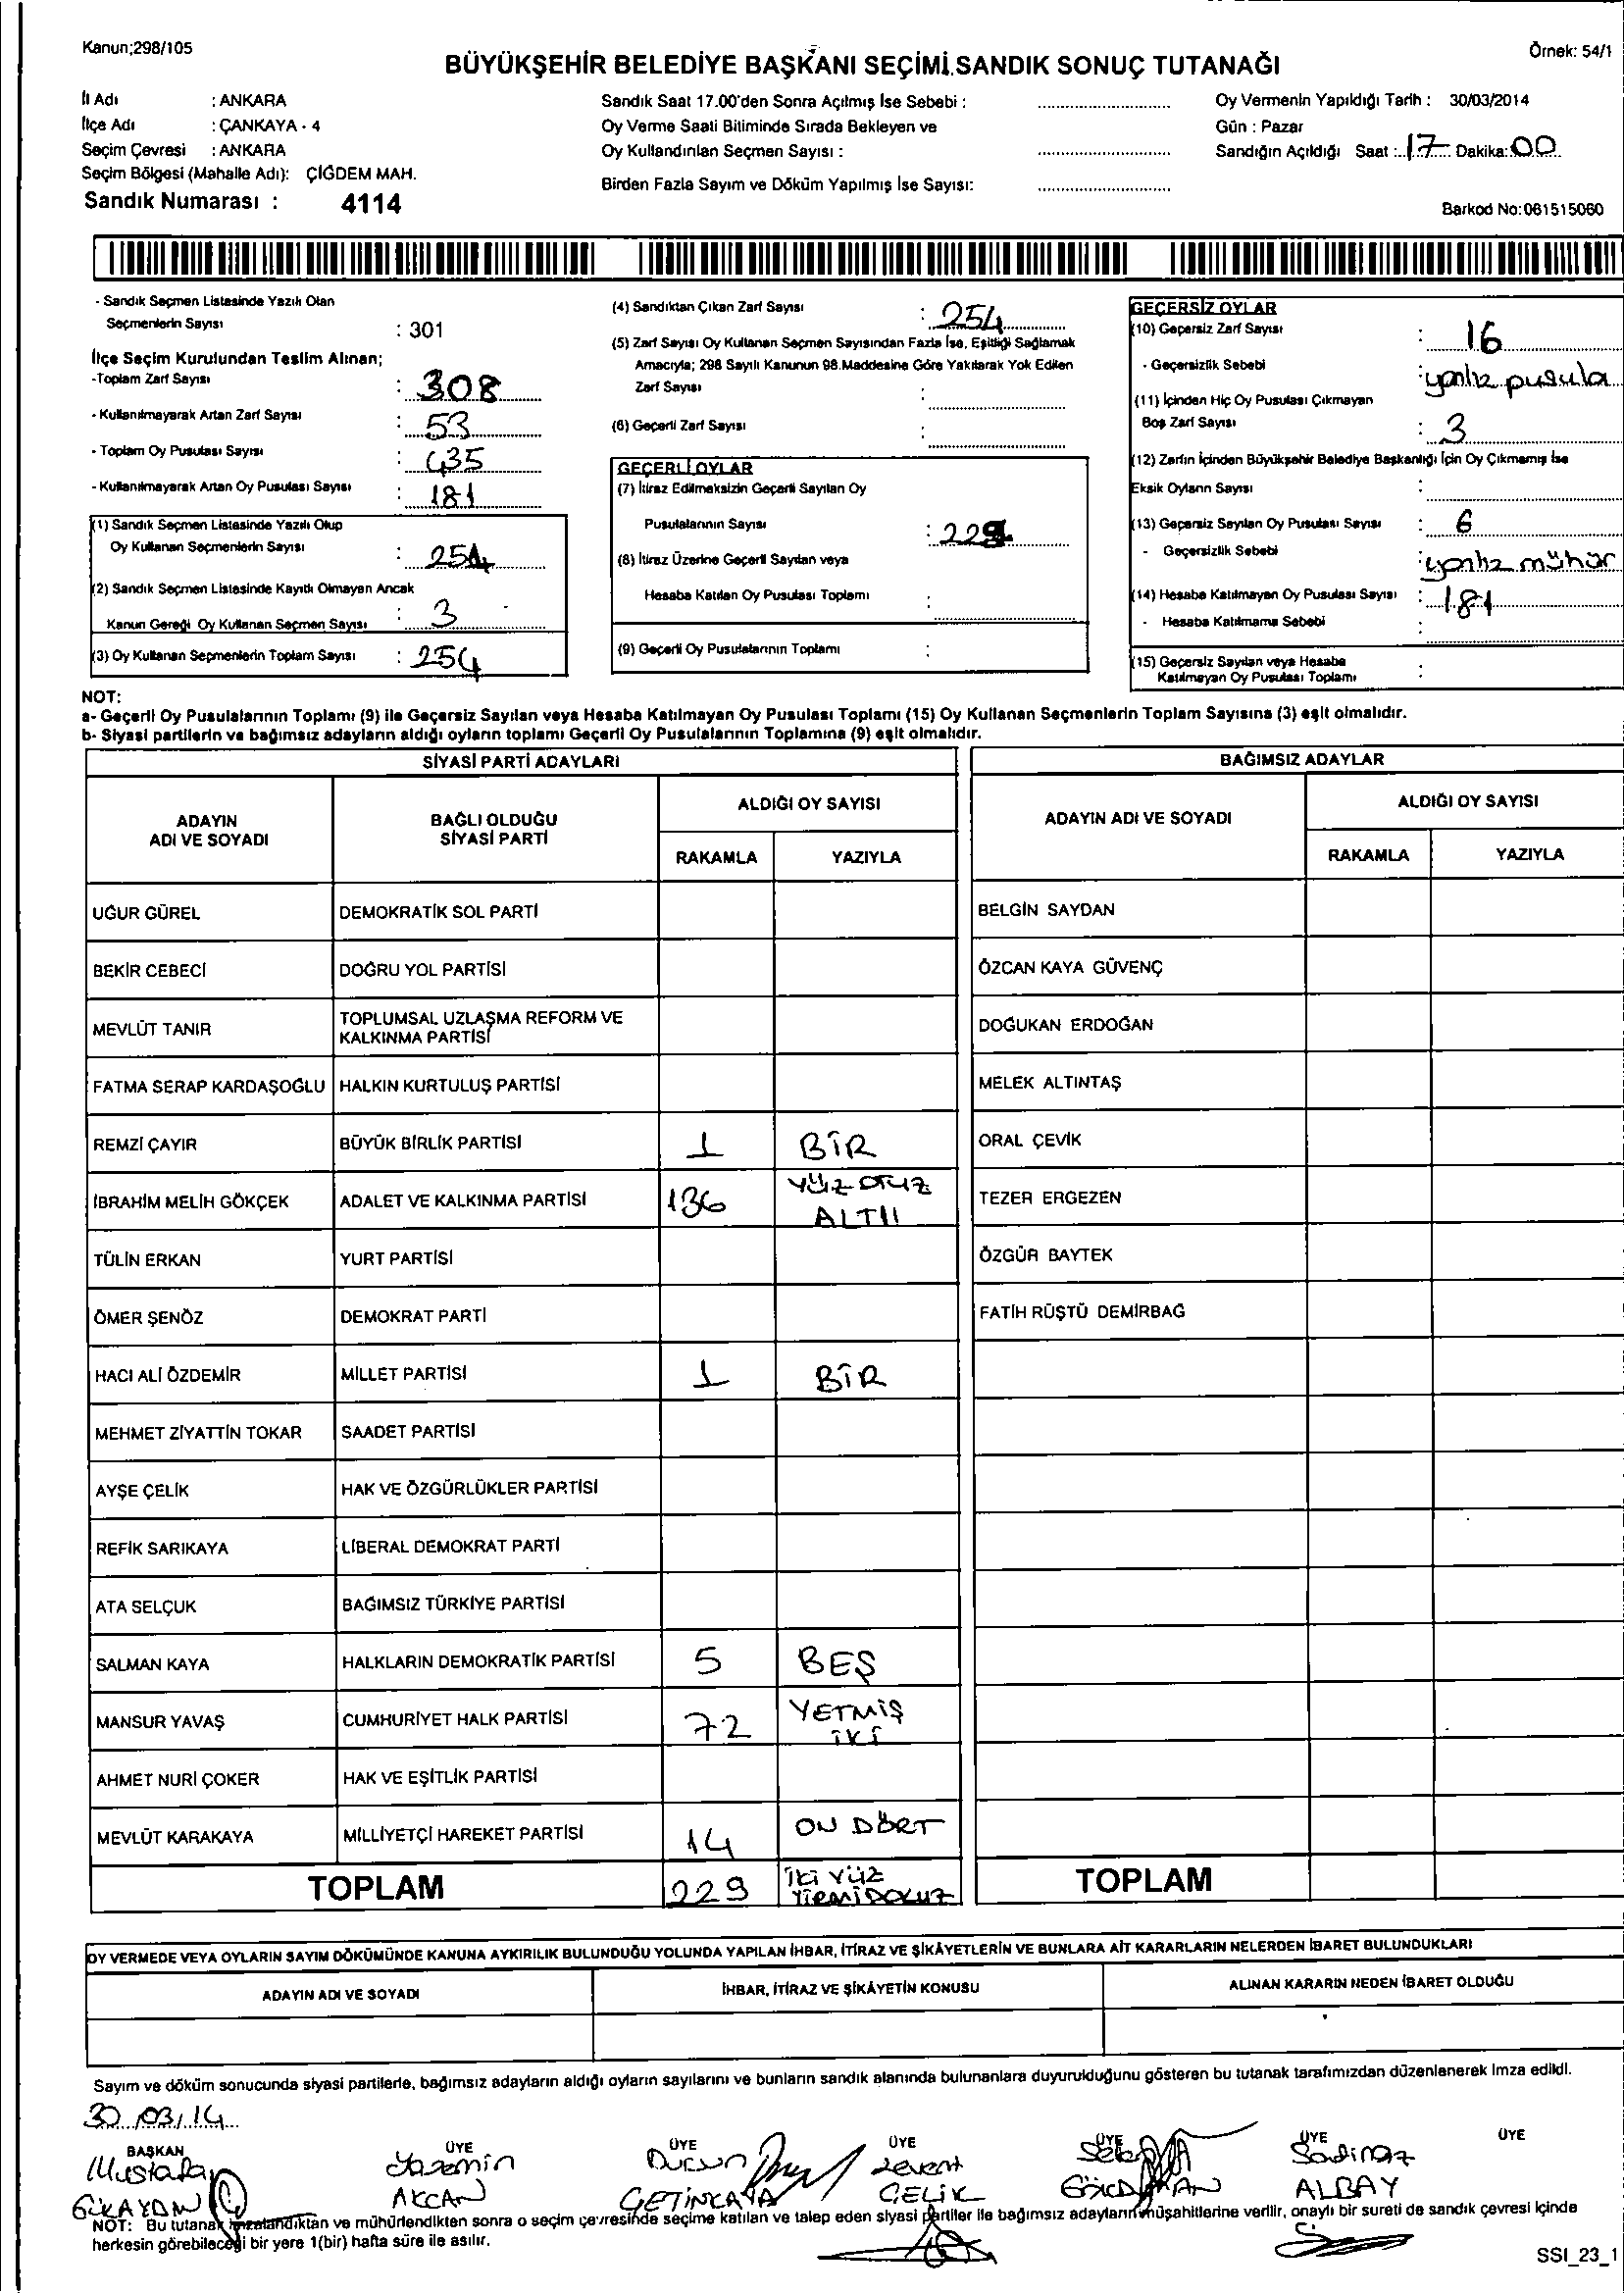 Kanun;298/105
Örnek: 54/1
BÜYÜKŞEHİR BELEDİYE BAŞKANI SEÇİMİ.SANDIK SONUÇ TUTANAĞI
İl Adı : ANKARA
İlçe Adı : ÇANKAYA - 4
Seçim Çevresi : ANKARA
Seçim Bölgesi (Mahalle Adı): ÇİĞDEM MAH.
Sandık Numarası : 4114
Sandık Saat 17.00'den Sonra Açılmış İse Sebebi :
Oy Verme Saati Bitiminde Sırada Bekleyen ve
Oy Kullandırılan Seçmen Sayısı :
Birden Fazla Sayım ve Döküm Yapılmış İse Sayısı:
Oy Vermenin Yapıldığı Tarih : 30/03/2014
Gün : Pazar
Sandığın Açıldığı Saat : 17 Dakika: 00
Barkod No:061515060
- Sandık Seçmen Listesinde Yazılı Olan
Seçmenlerin Sayısı : 301
İlçe Seçim Kurulundan Teslim Alınan;
-Toplam Zarf Sayısı : 308
- Kullanılmayarak Artan Zarf Sayısı : 53
- Toplam Oy Pusulası Sayısı : 435
- Kullanılmayarak Artan Oy Pusulası Sayısı : 181
(1) Sandık Seçmen Listesinde Yazılı Olup
Oy Kullanan Seçmenlerin Sayısı : 254
(2) Sandık Seçmen Listesinde Kayıtlı Olmayan Ancak
Kanun Gereği Oy Kullanan Seçmen Sayısı : 3
(3) Oy Kullanan Seçmenlerin Toplam Sayısı : 254
(4) Sandıktan Çıkan Zarf Sayısı : 254
(5) Zarf Sayısı Oy Kullanan Seçmen Sayısından Fazla İse, Eşitliği Sağlamak
Amacıyla; 298 Sayılı Kanunun 98.Maddesine Göre Yakılarak Yok Edilen
Zarf Sayısı :
(6) Geçerli Zarf Sayısı :
GEÇERLİ OYLAR
(7) İtiraz Edilmeksizin Geçerli Sayılan Oy
Pusulalarının Sayısı : 229
(8) İtiraz Üzerine Geçerli Sayılan veya
Hesaba Katılan Oy Pusulası Toplamı :
(9) Geçerli Oy Pusulalarının Toplamı :
GEÇERSİZ OYLAR
(10) Geçersiz Zarf Sayısı : 16
- Geçersizlik Sebebi : yanlız pusula
(11) İçinden Hiç Oy Pusulası Çıkmayan
Boş Zarf Sayısı : 3
(12) Zarfın İçinden Büyükşehir Belediye Başkanlığı İçin Oy Çıkmamış İse
Eksik Oyların Sayısı :
(13) Geçersiz Sayılan Oy Pusulası Sayısı : 6
- Geçersizlik Sebebi : yanlız mühür
(14) Hesaba Katılmayan Oy Pusulası Sayısı : 181
- Hesaba Katılmama Sebebi :
(15) Geçersiz Sayılan veya Hesaba
Katılmayan Oy Pusulası Toplamı :
NOT:
a- Geçerli Oy Pusulalarının Toplamı (9) ile Geçersiz Sayılan veya Hesaba Katılmayan Oy Pusulası Toplamı (15) Oy Kullanan Seçmenlerin Toplam Sayısına (3) eşit olmalıdır.
b- Siyasi partilerin ve bağımsız adayların aldığı oyların toplamı Geçerli Oy Pusulalarının Toplamına (9) eşit olmalıdır.
SİYASİ PARTİ ADAYLARI
ADAYIN ADI VE SOYADI
BAĞLI OLDUĞU SİYASİ PARTİ
ALDIĞI OY SAYISI
RAKAMLA YAZIYLA
UĞUR GÜREL DEMOKRATİK SOL PARTİ
BEKİR CEBECİ DOĞRU YOL PARTİSİ
MEVLÜT TANIR TOPLUMSAL UZLAŞMA REFORM VE
KALKINMA PARTİSİ
FATMA SERAP KARDAŞOĞLU HALKIN KURTULUŞ PARTİSİ
REMZİ ÇAYIR BÜYÜK BİRLİK PARTİSİ 1 BİR
İBRAHİM MELİH GÖKÇEK ADALET VE KALKINMA PARTİSİ 136 YÜZ OTUZ
ALTII
TÜLİN ERKAN YURT PARTİSİ
ÖMER ŞENÖZ DEMOKRAT PARTİ
HACI ALİ ÖZDEMİR MİLLET PARTİSİ 1 BİR
MEHMET ZİYATTİN TOKAR SAADET PARTİSİ
AYŞE ÇELİK HAK VE ÖZGÜRLÜKLER PARTİSİ
REFİK SARIKAYA LİBERAL DEMOKRAT PARTİ
ATA SELÇUK BAĞIMSIZ TÜRKİYE PARTİSİ
SALMAN KAYA HALKLARIN DEMOKRATİK PARTİSİ 5 BEŞ
MANSUR YAVAŞ CUMHURİYET HALK PARTİSİ 72 YETMİŞ
İKİ
AHMET NURİ ÇOKER HAK VE EŞİTLİK PARTİSİ
MEVLÜT KARAKAYA MİLLİYETÇİ HAREKET PARTİSİ 14 ON DÖRT
TOPLAM 229 İKİ YÜZ
YİRMİDOKUZ
BAĞIMSIZ ADAYLAR
ADAYIN ADI VE SOYADI
ALDIĞI OY SAYISI
RAKAMLA YAZIYLA
BELGİN SAYDAN
ÖZCAN KAYA GÜVENÇ
DOĞUKAN ERDOĞAN
MELEK ALTINTAŞ
ORAL ÇEVİK
TEZER ERGEZEN
ÖZGÜR BAYTEK
FATİH RÜŞTÜ DEMİRBAĞ
TOPLAM
OY VERMEDE VEYA OYLARIN SAYIM DÖKÜMÜNDE KANUNA AYKIRILIK BULUNDUĞU YOLUNDA YAPILAN İHBAR, İTİRAZ VE ŞİKÂYETLERİN VE BUNLARA AİT KARARLARIN NELERDEN İBARET BULUNDUKLARI
ADAYIN ADI VE SOYADI
İHBAR, İTİRAZ VE ŞİKÂYETİN KONUSU
ALINAN KARARIN NEDEN İBARET OLDUĞU
Sayım ve döküm sonucunda siyasi partilerle, bağımsız adayların aldığı oyların sayılarını ve bunların sandık alanında bulunanlara duyurulduğunu gösteren bu tutanak tarafımızdan düzenlenerek imza edildi.
30/03/14
BAŞKAN ÜYE ÜYE ÜYE ÜYE ÜYE ÜYE
Mustafa Yasemin Dursun Levent Sadinaz
AKCAN ÇETİNKAYA ÇELİK ALBAY
NOT: Bu tutanak imzalandıktan ve mühürlendikten sonra o seçim çevresinde seçime katılan ve talep eden siyasi partiler ile bağımsız adayların müşahitlerine verilir, onaylı bir sureti de sandık çevresi içinde
herkesin görebileceği bir yere 1(bir) hafta süre ile asılır.
SSI_23_1